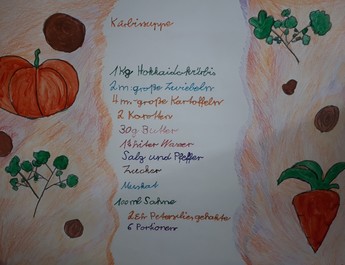 Kürbissuppe
1 Kg Hokkaidokürbis
2 m. große Zwiebeln
4 m. große Kartoffeln
2 Karotten
30g Butter
1 ½ Liter Wasser
Salz und Pfeffer
Zucker
Muskat
100 ml Sahne
2 Eßl Petersilie, gehackte
6 Portionen